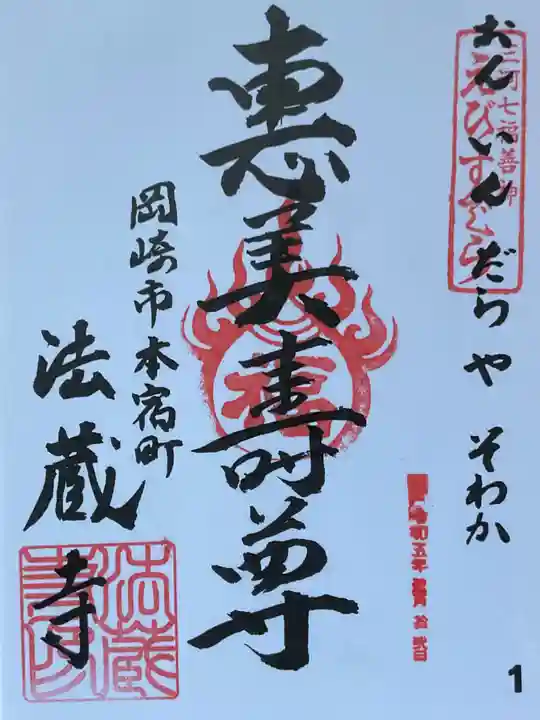 三河七福善神
えびすぐら
おん いんだらや そわか
惠美壽尊
福
岡崎市本宿町
法蔵寺
法蔵
令和五年
拾弐日
1